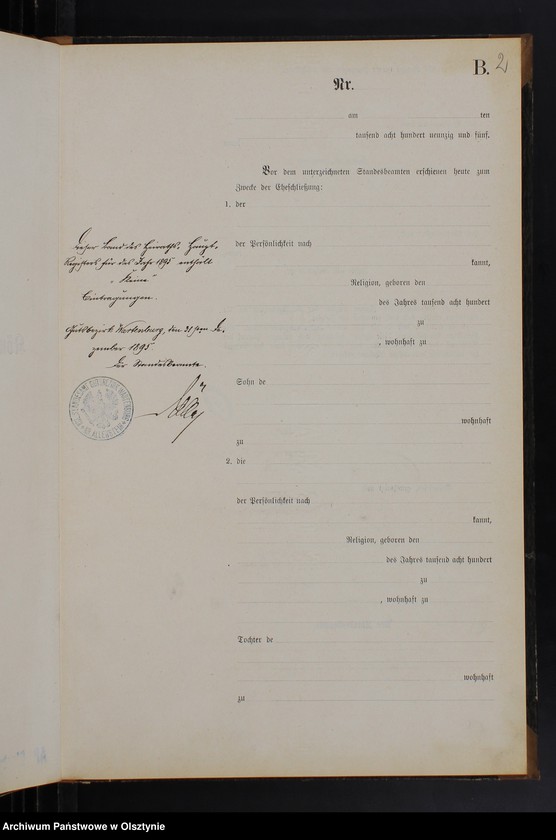 B. 2
Nr.
am ten
tausend acht hundert neunzig und fünf.
Vor dem unterzeichneten Standesbeamten erschienen heute zum
Zwecke der Eheschließung:
1. der
der Persönlichkeit nach
kannt,
Religion, geboren den
des Jahres tausend acht hundert
zu
, wohnhaft zu
Sohn de
wohnhaft
zu
2. die
der Persönlichkeit nach
kannt,
Religion, geboren den
des Jahres tausend acht hundert
zu
, wohnhaft zu
Tochter de
wohnhaft
zu
Dieser Band des Heiraths-Haupt-
Registers für das Jahr 1895 enthält
"Keine"
Eintragungen.
Gutsbezirk Wartenburg, den 31ten De-
zember 1895
Der Standesbeamte.
Archiwum Państwowe w Olsztynie